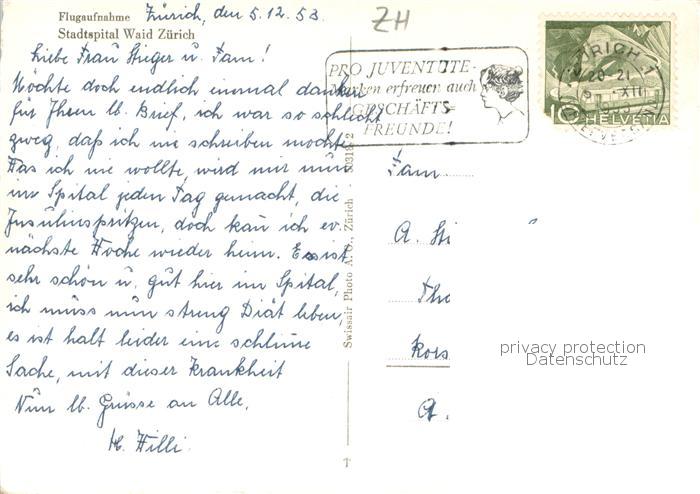 Flugaufnahme
Stadtspital Waid Zürich
Zürich, den 5.12.53
ZH
Liebe Frau Stieger u. Fam!
Möchte doch endlich einmal danken
für Ihren lb. Brief, ich war so schlecht
zweg, daß ich nie schreiben mochte.
Was ich nie wollte, wird mir nun
im Spital jeden Tag gemacht, die
Insulinspritzen, doch kan ich ev.
nächste Woche wieder heim. Es ist
sehr schön u. gut hier im Spital,
ich muss nun streng Diät leben,
es ist halt leider eine schlime
Sache, mit dieser Krankheit
Nun lb. Grüsse an Alle,
Willi.
PRO JUVENTUTE-
Marken erfreuen auch
GESCHÄFTS=
FREUNDE!
ZÜRICH 1
20-21
XII
10 HELVETIA
Swissair Photo A. G., Zürich
Fam
A. Sti
Tha
Kors
A.
privacy protection
Datenschutz